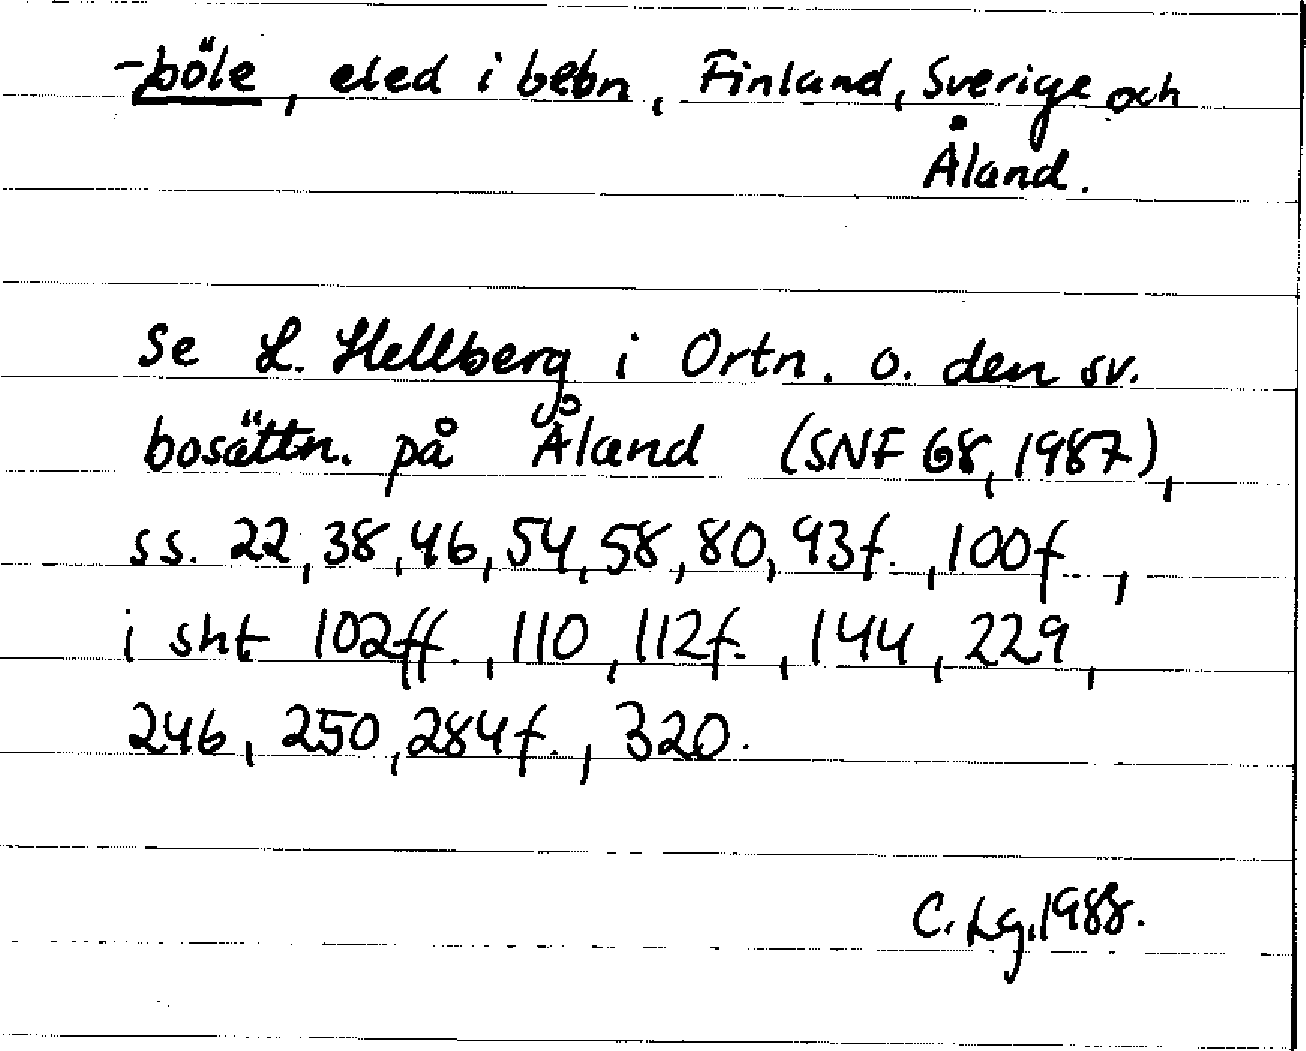 -böle, eled i bebn, Finland, Sverige och
Åland.
Se L. Hellberg i Ortn. o. den sv.
bosättn. på Åland (SNF 68, 1987),
ss. 22, 38, 46, 54, 58, 80, 93f., 100f.,
i sht 102ff., 110, 112f., 144, 229,
246, 250, 284f., 320.
C. Lg. 1988.